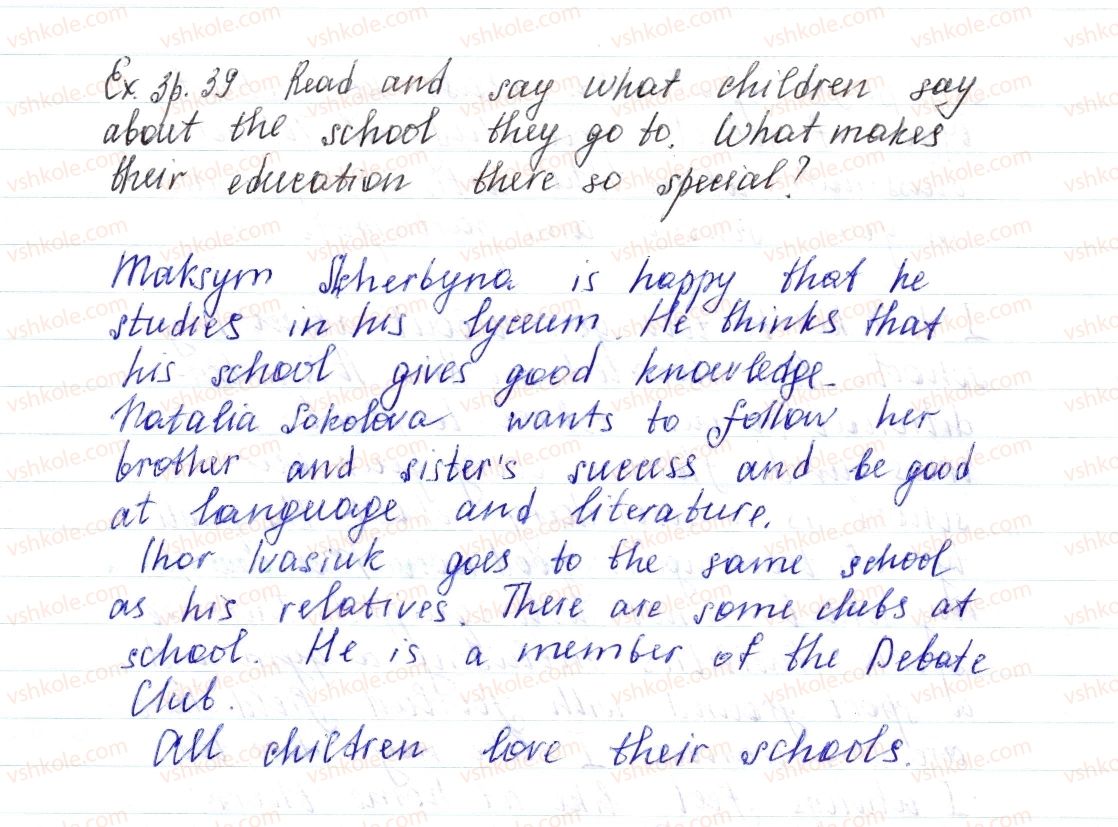 Ex. 3p. 39 Read and say what children say
about the school they go to. What makes
their education there so special?
Maksym Shcherbyna is happy that he
studies in his lyceum. He thinks that
his school gives good knowledge.
Natalia Sokolova wants to follow her
brother and sister's success and be good
at language and literature.
Ihor Ivasiuk goes to the same school
as his relatives. There are some clubs at
school. He is a member of the Debate
Club.
All children love their schools.